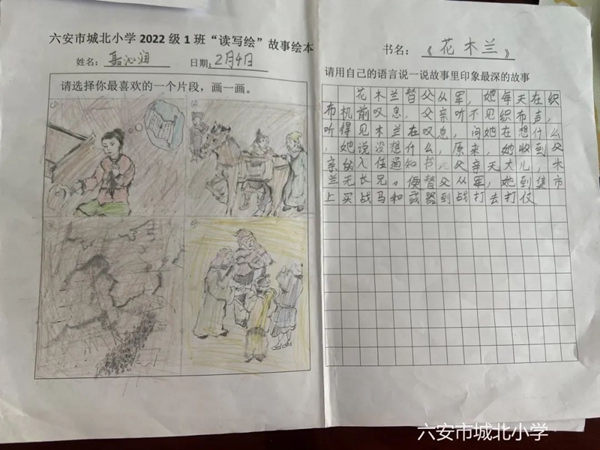 六安市城北小学 2022 级 1 班“读写绘”故事绘本
姓名： 沁润 日期：2月4日
请选择你最喜欢的一个片段，画一画。
书名：《花木兰》
请用自己的语言说一说故事里印象最深的故事
花木兰替父从军，她每天在织
布机前叹息，父亲听不见织布声，
听得见木兰在叹息，问她在想什么
，她说没想什么，原来，她收到父
亲 入伍通知书，父亲无大儿，木
兰无长兄。便替父从军，她到集市
上买战马和武器到战打去打仗
六安市城北小学